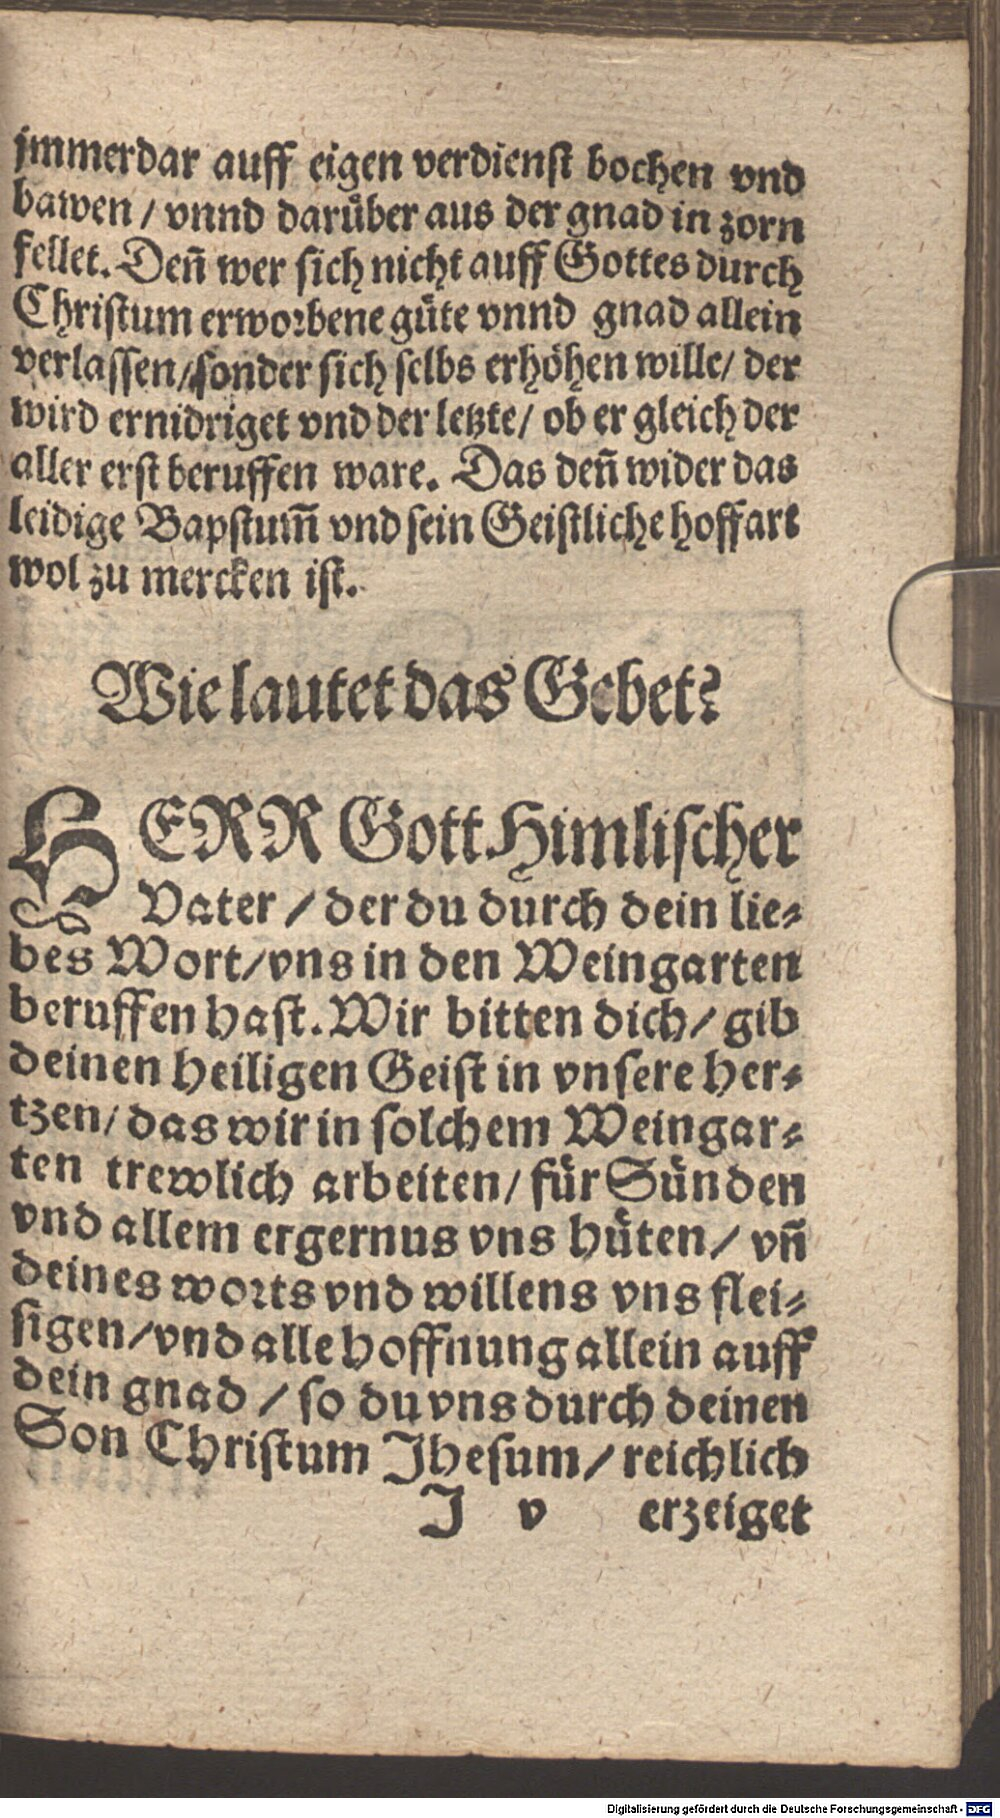 jmmerdar auff eigen verdienst bochen vnd
bawen / vnnd darüber aus der gnad in zorn
fellet. Deñ wer sich nicht auff Gottes durch
Christum erworbene güte vnnd gnad allein
verlassen / sonder sich selbs erhöhen wille / der
wird ernidriget vnd der letzte / ob er gleich der
aller erst beruffen ware. Das deñ wider das
leidige Bapstum̃ vnd sein Geistliche hoffart
wol zu mercken ist.
Wie lautet das Gebet?
HERR Gott Himlischer
Vater / der du durch dein lie-
bes Wort / vns in den Weingarten
beruffen hast. Wir bitten dich / gib
deinen heiligen Geist in vnsere her-
tzen / das wir in solchem Weingar-
ten trewlich arbeiten / für Sünden
vnd allem ergernus vns hüten / vñ
deines worts vnd willens vns flei-
sigen / vnd alle hoffnung allein auff
dein gnad / so du vns durch deinen
Son Christum Jhesum / reichlich
J v erzeiget
Digitalisierung gefördert durch die Deutsche Forschungsgemeinschaft - DFG